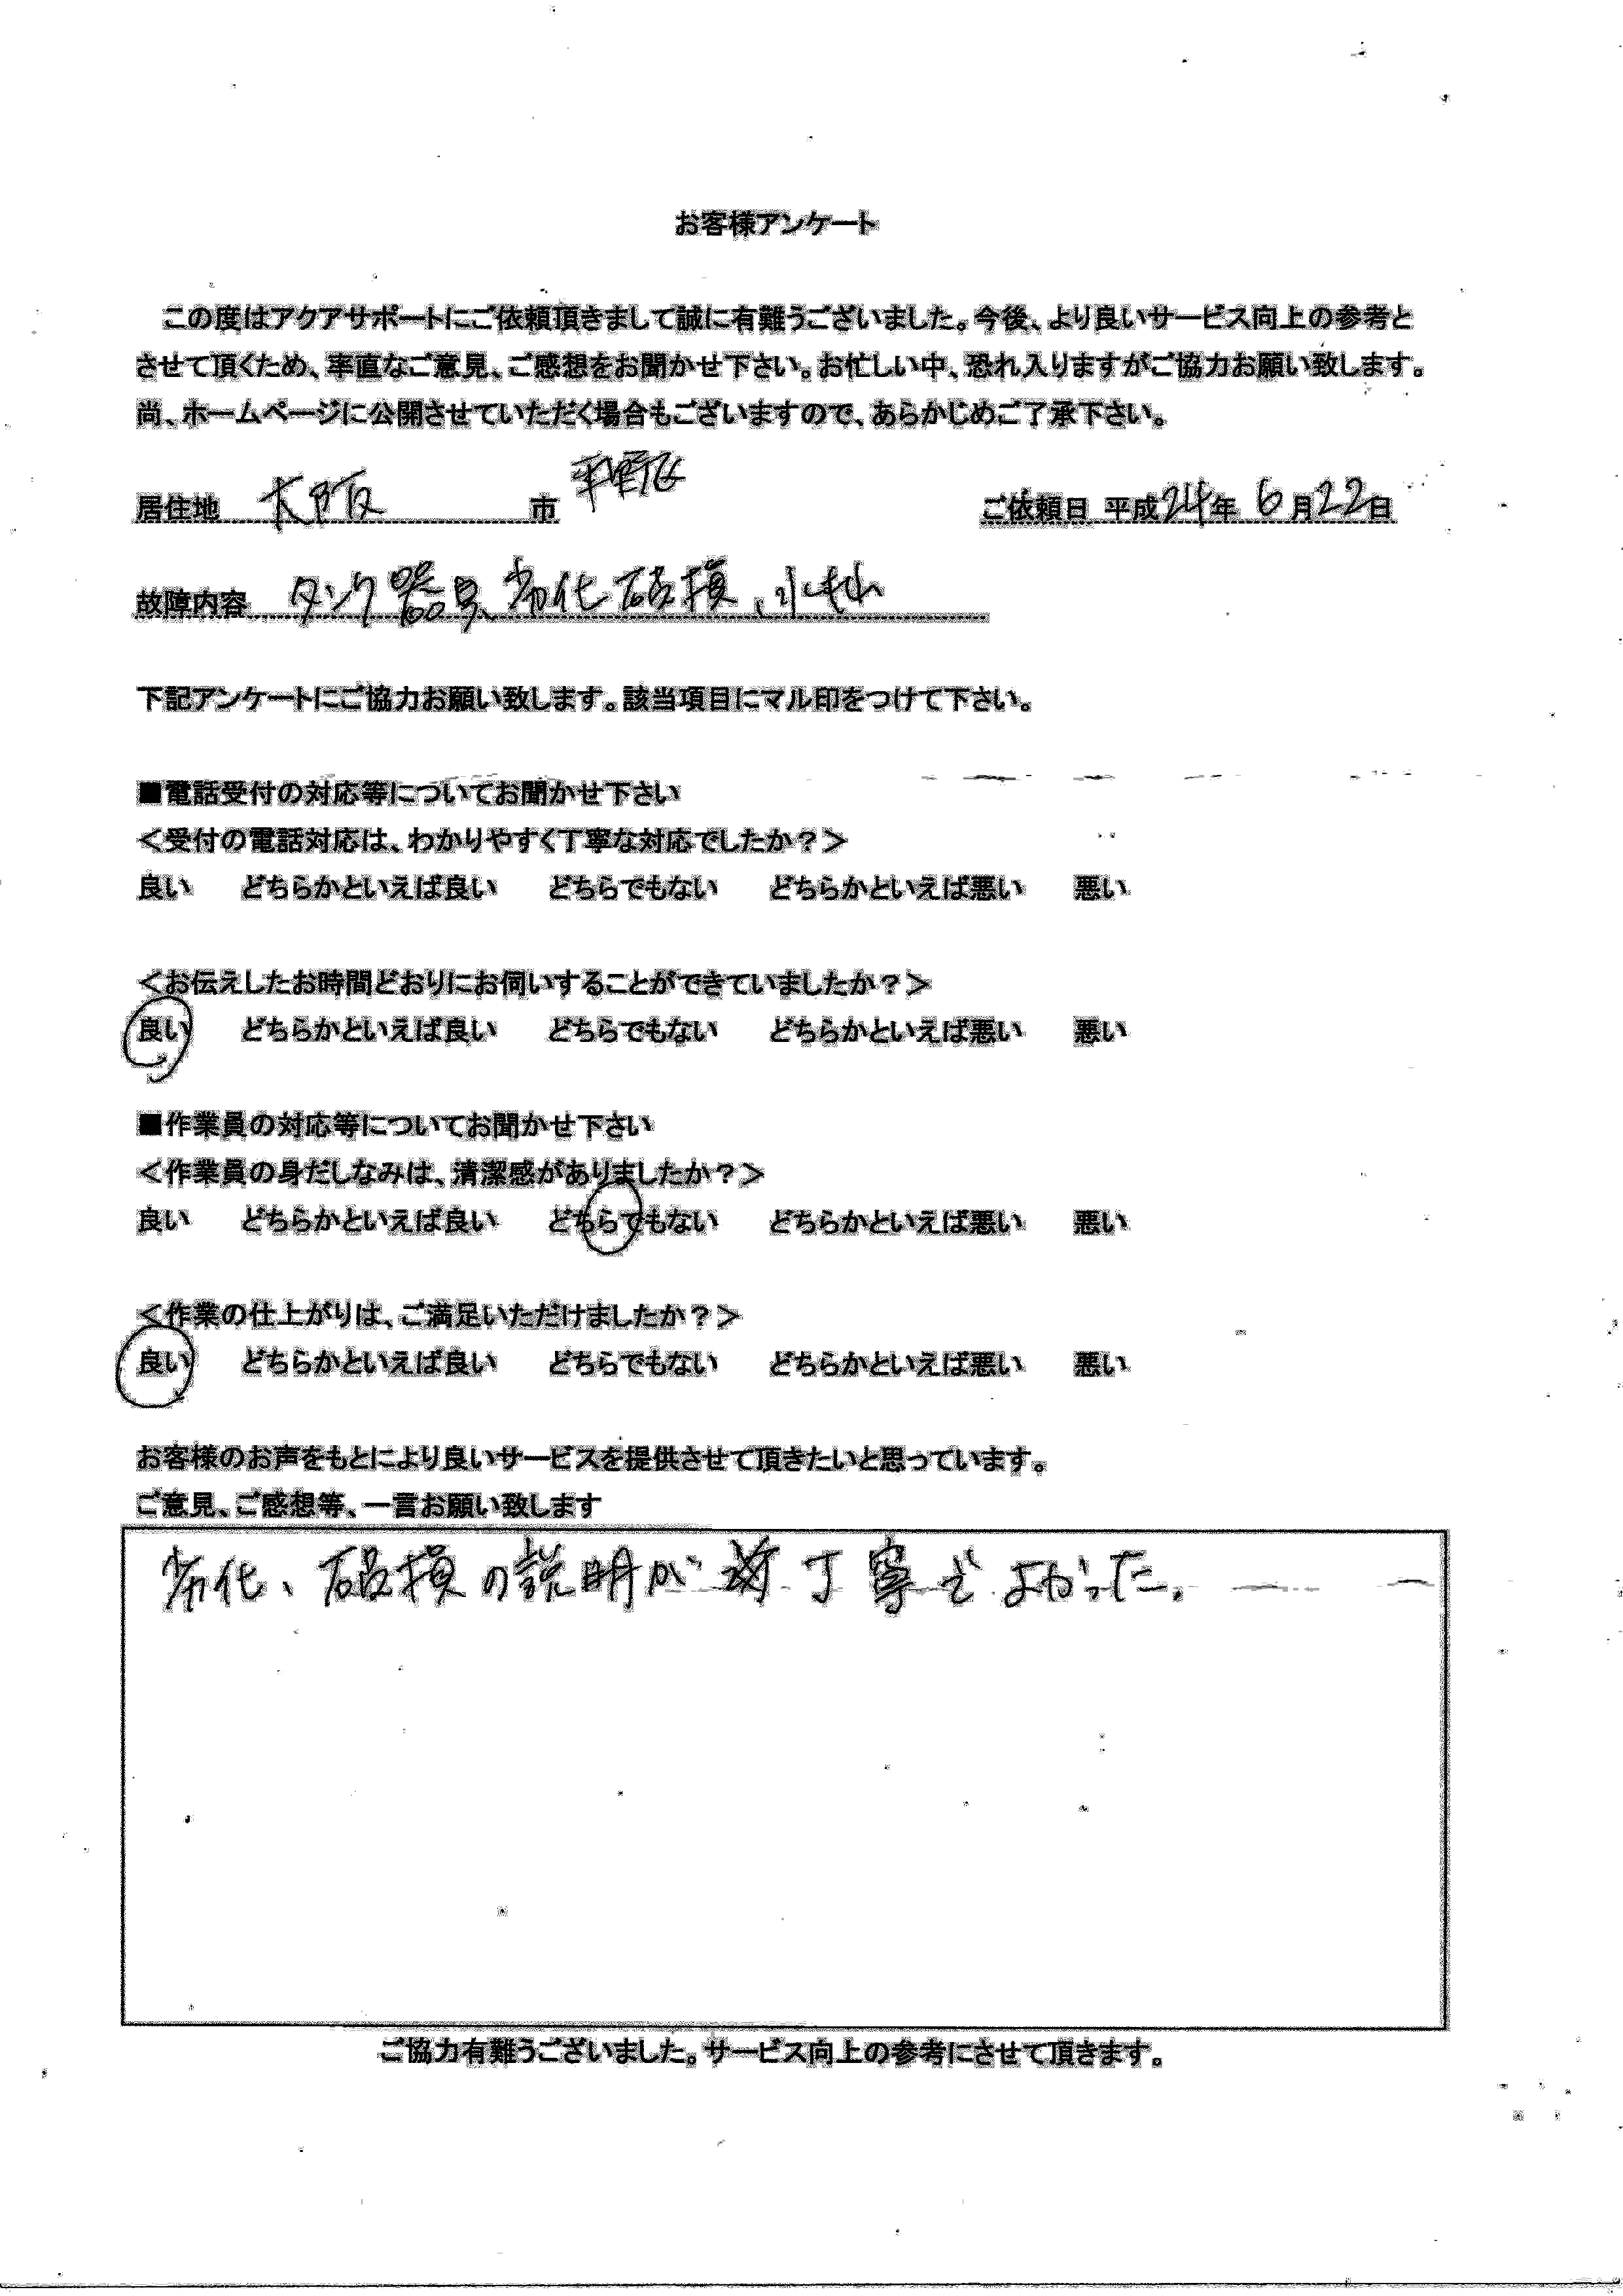 お客様アンケート
この度はアクアサポートにご依頼頂きまして誠に有難うございました。今後、より良いサービス向上の参考と
させて頂くため、率直なご意見、ご感想をお聞かせ下さい。お忙しい中、恐れ入りますがご協力お願い致します。
尚、ホームページに公開させていただく場合もございますので、あらかじめご了承下さい。
居住地 大阪 市 平野区 ご依頼日 平成24年 6月22日
故障内容 タンク器具劣化破損、
下記アンケートにご協力お願い致します。該当項目にマル印をつけて下さい。
■電話受付の対応等についてお聞かせ下さい
＜受付の電話対応は、わかりやすく丁寧な対応でしたか？＞
良い どちらかといえば良い どちらでもない どちらかといえば悪い 悪い
＜お伝えしたお時間どおりにお伺いすることができていましたか？＞
良い どちらかといえば良い どちらでもない どちらかといえば悪い 悪い
■作業員の対応等についてお聞かせ下さい
＜作業員の身だしなみは、清潔感がありましたか？＞
良い どちらかといえば良い どちらでもない どちらかといえば悪い 悪い
＜作業の仕上がりは、ご満足いただけましたか？＞
良い どちらかといえば良い どちらでもない どちらかといえば悪い 悪い
お客様のお声をもとにより良いサービスを提供させて頂きたいと思っています。
ご意見、ご感想等、一言お願い致します
劣化、破損の説明が丁寧でよかった。
ご協力有難うございました。サービス向上の参考にさせて頂きます。